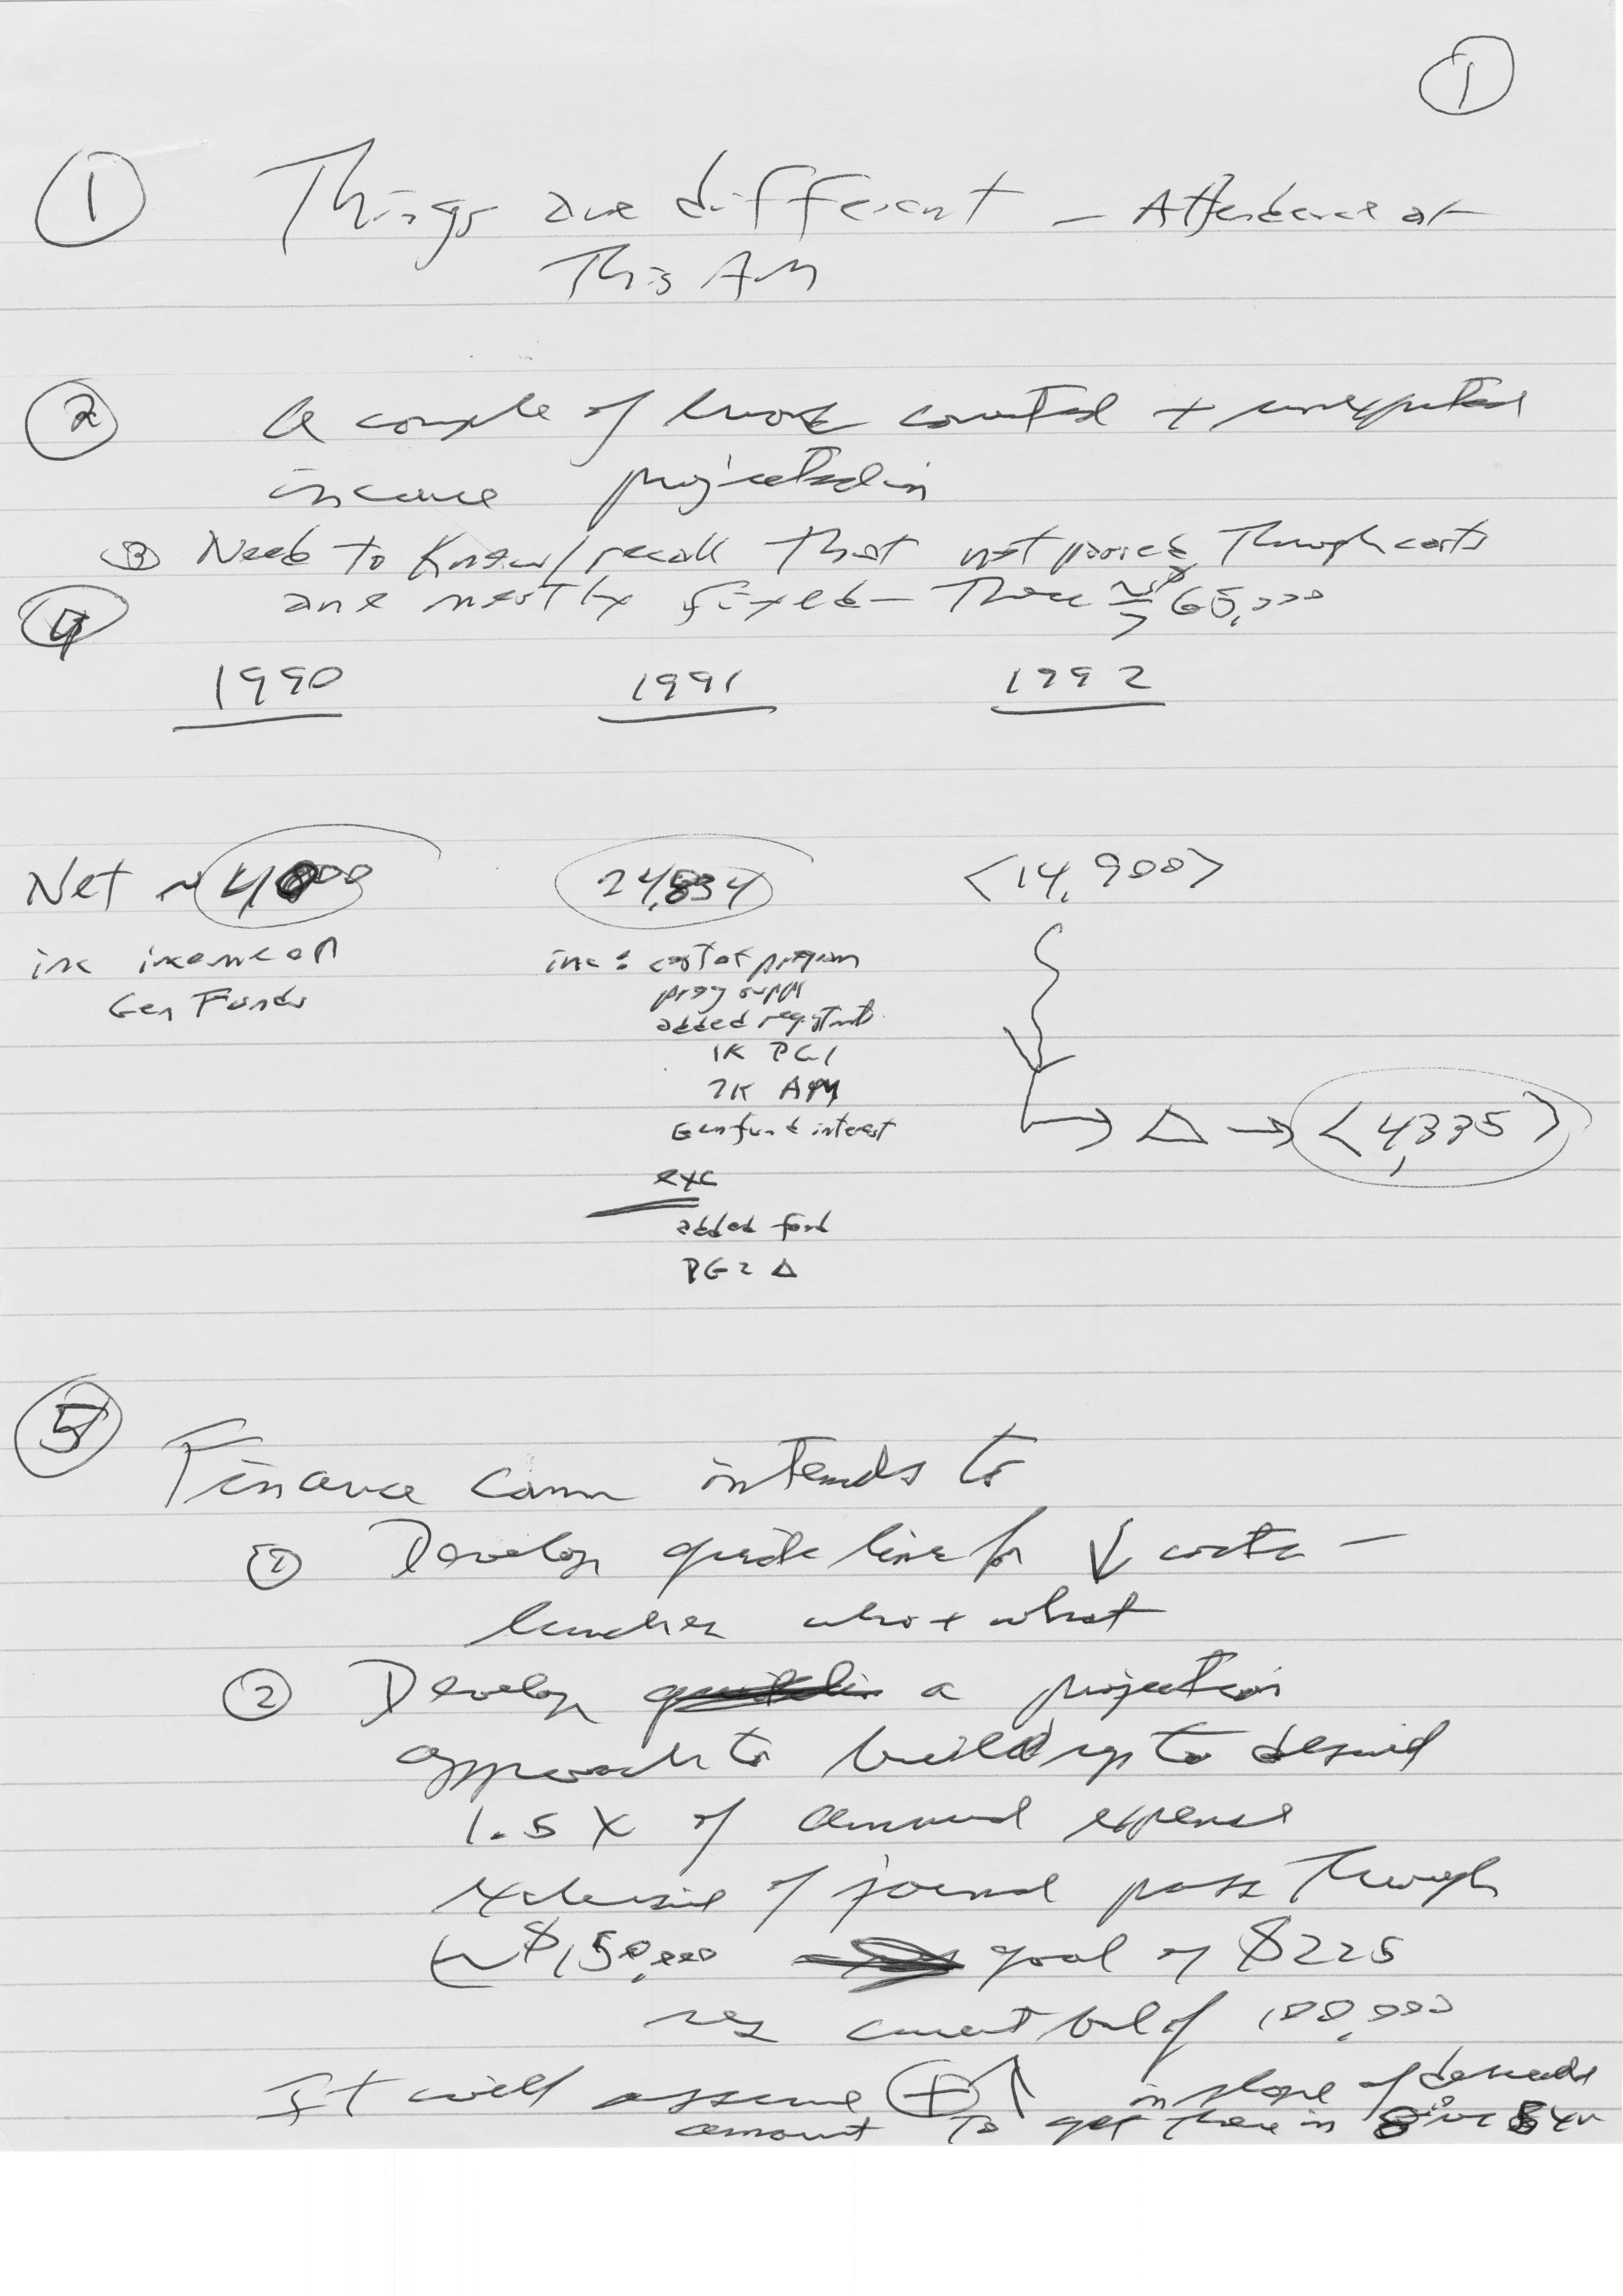 1
① Things are different – Attendance at
This AM
② A couple of errors counted + unexpected
income projected in
③ Need to know/recall that not passed through costs
are mostly fixed – These ≥ 65,000
④
1990 1991 1992
Net ~ 4,000 24,834 <14,900>
inc income on Gen Funds
inc: cost of program
prog suppl
added registrants
1K PG1
2K AM
Gen fund interest
→ Δ → <4,335>
exc
added food
PG2 Δ
⑤
Finance Comm intends to
① Develop guide line for ↓ costs –
lunches who + what
② Develop a projection
approach to build up to desired
1.5 X of annual expense
exclusive of journal pass through
~ $150,000 goal of $225
current bal of 100,000
It will assume ⊕ ↑ in slope of
amount to get there in